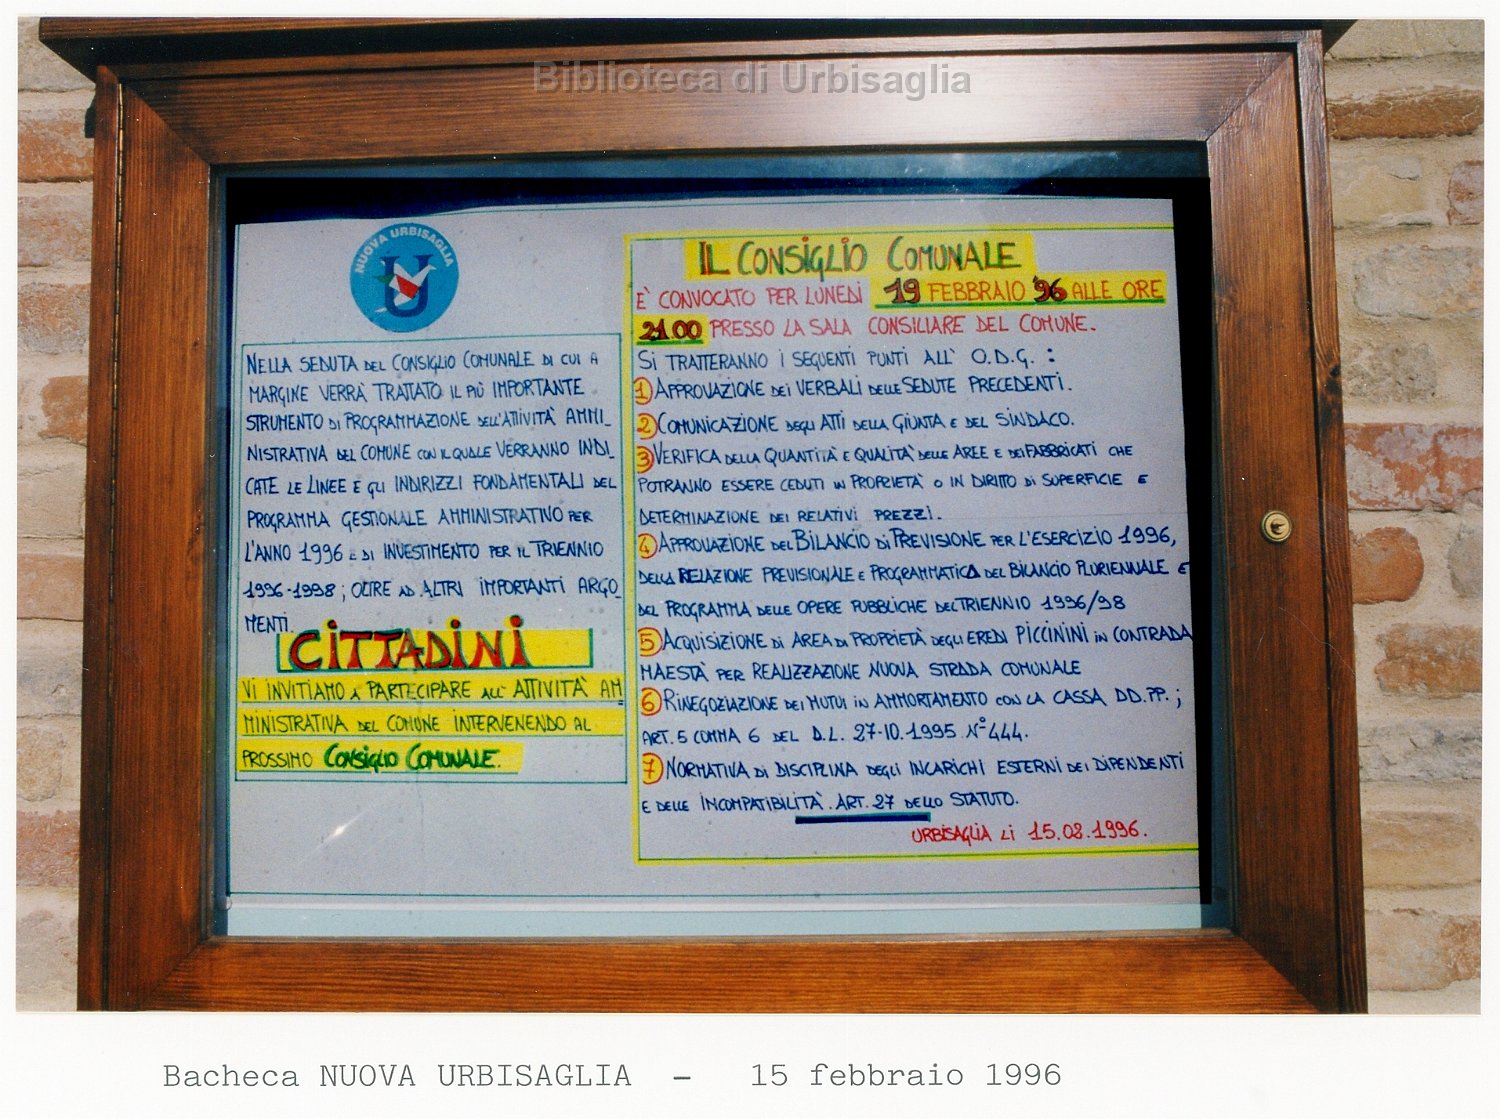 Biblioteca di Urbisaglia
NUOVA URBISAGLIA
U
NELLA SEDUTA DEL CONSIGLIO COMUNALE DI CUI A
MARGINE VERRÀ TRATTATO IL PIÙ IMPORTANTE
STRUMENTO DI PROGRAMMAZIONE DELL'ATTIVITÀ AMMI_
NISTRATIVA DEL COMUNE CON IL QUALE VERRANNO INDI_
CATE LE LINEE E GLI INDIRIZZI FONDAMENTALI DEL
PROGRAMMA GESTIONALE AMMINISTRATIVO PER
L'ANNO 1996 E DI INVESTIMENTO PER IL TRIENNIO
1996-1998; OLTRE AD ALTRI IMPORTANTI ARGO_
MENTI.
CITTADINI
VI INVITIAMO A PARTECIPARE ALL' ATTIVITÀ AM_
MINISTRATIVA DEL COMUNE INTERVENENDO AL
PROSSIMO CONSIGLIO COMUNALE.
IL CONSIGLIO COMUNALE
E' CONVOCATO PER LUNEDÌ 19 FEBBRAIO '96 ALLE ORE
21.00 PRESSO LA SALA CONSILIARE DEL COMUNE.
SI TRATTERANNO I SEGUENTI PUNTI ALL' O.D.G. :
1 APPROVAZIONE DEI VERBALI DELLE SEDUTE PRECEDENTI.
2 COMUNICAZIONE DEGLI ATTI DELLA GIUNTA E DEL SINDACO.
3 VERIFICA DELLA QUANTITÀ E QUALITÀ DELLE AREE E DEI FABBRICATI CHE
POTRANNO ESSERE CEDUTI IN PROPRIETÀ O IN DIRITTO DI SUPERFICIE E
DETERMINAZIONE DEI RELATIVI PREZZI.
4 APPROVAZIONE DEL BILANCIO DI PREVISIONE PER L'ESERCIZIO 1996,
DELLA RELAZIONE PREVISIONALE E PROGRAMMATICA DEL BILANCIO PLURIENNALE E
DEL PROGRAMMA DELLE OPERE PUBBLICHE DEL TRIENNIO 1996/98
5 ACQUISIZIONE DI AREA DI PROPRIETÀ DEGLI EREDI PICCININI IN CONTRADA
MAESTÀ PER REALIZZAZIONE NUOVA STRADA COMUNALE
6 RINEGOZIAZIONE DEI MUTUI IN AMMORTAMENTO CON LA CASSA DD.PP. ;
ART. 5 COMMA 6 DEL D.L. 27-10.1995 N° 444.
7 NORMATIVA DI DISCIPLINA DEGLI INCARICHI ESTERNI DEI DIPENDENTI
E DELLE INCOMPATIBILITÀ. ART. 27 DELLO STATUTO.
URBISAGLIA LI 15.02.1996.
Bacheca NUOVA URBISAGLIA - 15 febbraio 1996